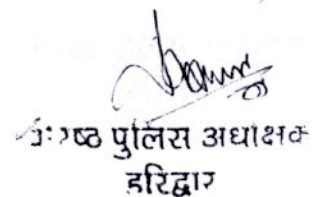 वरिष्ठ पुलिस अधीक्षक
हरिद्वार